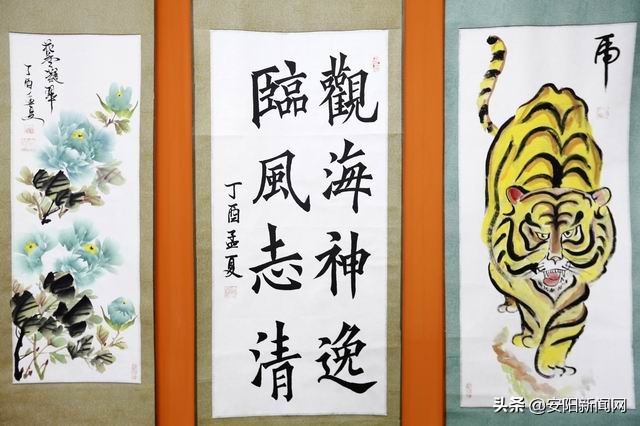 觀海神逸
臨風志清
丁酉孟夏
丁酉孟夏
虎
头条 @安阳新闻网